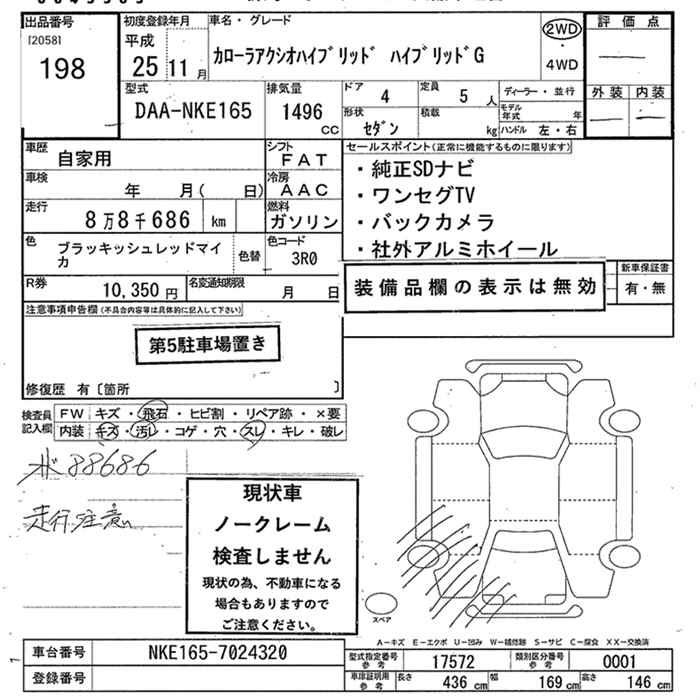 出品番号
[2058]
198
初度登録年月
平成
25 11月
車名・グレード
カローラアクシオハイブリッド ハイブリッドG
2WD
・
4WD
評価点
外装 内装
型式
DAA-NKE165
排気量
1496 CC
ドア 4
定員 5 人
形状 セダン
積載 kg
ディーラー・並行
モデル年式 年
ハンドル 左・右
車歴 自家用
シフト FAT
車検 年 月( 日)
冷房 AAC
走行 8万8千686 km
燃料 ガソリン
色 ブラッキッシュレッドマイカ
色替
色コード 3R0
R券 10,350円
名変通知期限 月 日
セールスポイント(正常に機能するものに限ります)
・純正SDナビ
・ワンセグTV
・バックカメラ
・社外アルミホイール
装備品欄の表示は無効
新車保証書
有・無
注意事項申告欄(不具合内容等は具体的に記入して下さい)
第5駐車場置き
修復歴 有〔箇所 〕
検査員記入欄
FW キズ・飛石・ヒビ割・リペア跡・×要
内装 キズ・汚レ・コゲ・穴・スレ・キレ・破レ
88686
走行注意
現状車
ノークレーム
検査しません
現状の為、不動車になる
場合もありますので
ご注意ください。
スペア
A-キズ E-エクボ U-凹み W-補修跡 S-サビ C-腐食 XX-交換済
車台番号 NKE165-7024320
登録番号
型式指定番号参考 17572
類別区分番号参考 0001
車庫証明用参考 長さ 436 cm 幅 169 cm 高さ 146 cm